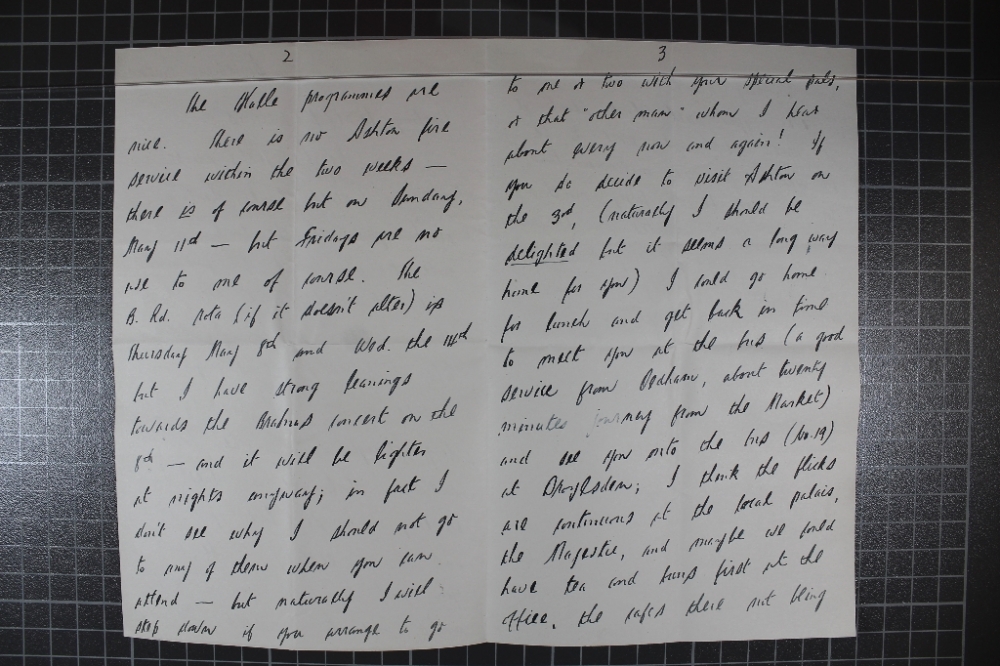 2
The Halle programmes are
nice. There is no Ashton fire
service within the two weeks —
there is of course but on Sunday,
May 11th — but Fridays are no
use to me of course. The
B. Rd. rota (if it doesn't alter) is
Thursday May 8th and Wed. the 14th
but I have strong leanings
towards the Brahms concert on the
8th — and it will be lighter
at nights anyway; in fact I
don't see why I should not go
to any of them when you can
attend — but naturally I will
stop down if you arrange to go
3
to one or two with your special pals,
or that "other man" whom I hear
about every now and again! If
you do decide to visit Ashton on
the 3rd, (naturally I should be
delighted but it seems a long way
home for you) I could go home
for lunch and get back in time
to meet you at the bus (a good
service from Oldham, about twenty
minutes journey from the Market)
and see you onto the bus (No. 19)
at Droylsden; I think the flicks
are continuous at the local palais,
the Majestic, and maybe we could
have tea and buns first at the
Office, the cafes there not being